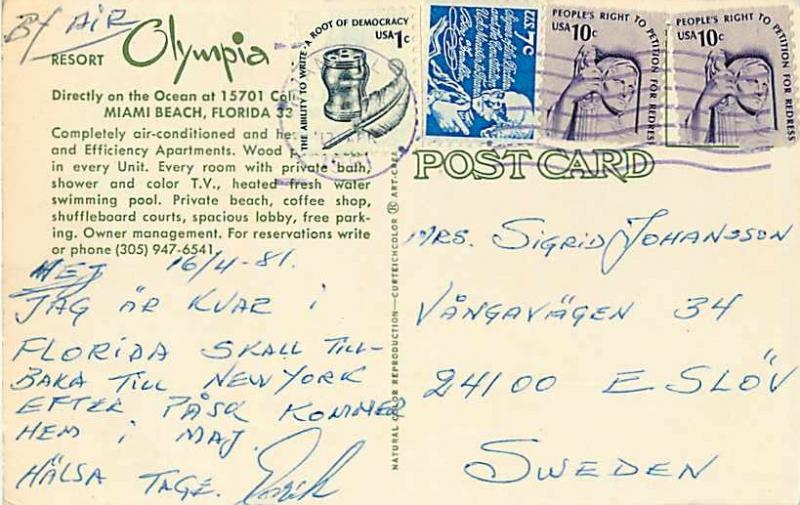 BY AIR
RESORT Olympia
Directly on the Ocean at 15701
MIAMI BEACH, FLORIDA 33
Completely air-conditioned and
and Efficiency Apartments. Wood
in every Unit. Every room with private bath,
shower and color T.V., heated fresh water
swimming pool. Private beach, coffee shop,
shuffleboard courts, spacious lobby, free park-
ing. Owner management. For reservations write
or phone (305) 947-6541.
HEJ 16/4-81.
JAG ÄR KVAR i
FLORIDA SKALL TILL-
BAKA TILL NEW YORK
EFTER PÅSK KOMMER
HEM i MAJ.
HÄLSA TAGE.
NATURAL COLOR REPRODUCTION—CURTEICHCOLOR ® ART-CREST
THE ABILITY TO WRITE · A ROOT OF DEMOCRACY
USA 1c
U.S. 7c
PEOPLE'S RIGHT TO PETITION FOR REDRESS
USA 10c
PEOPLE'S RIGHT TO PETITION FOR REDRESS
USA 10c
POST CARD
MRS. SIGRID JOHANSSON
VÅNGAVÄGEN 34
24100 ESLÖV
SWEDEN